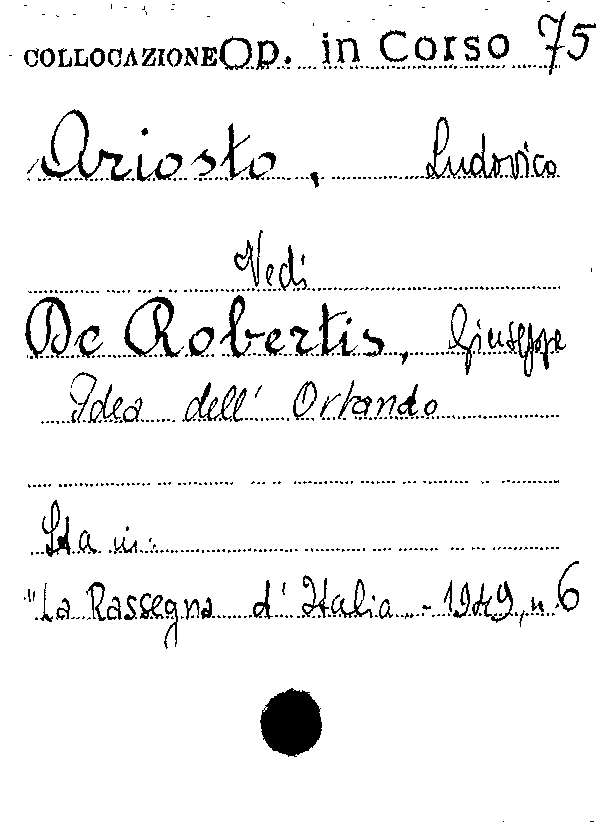 COLLOCAZIONE Op. in Corso 75
Ariosto, Ludovico
Vedi
De Robertis, Giuseppe
Idea dell' Orlando
Sta in:
"La Rassegna d'Italia - 1949, n 6